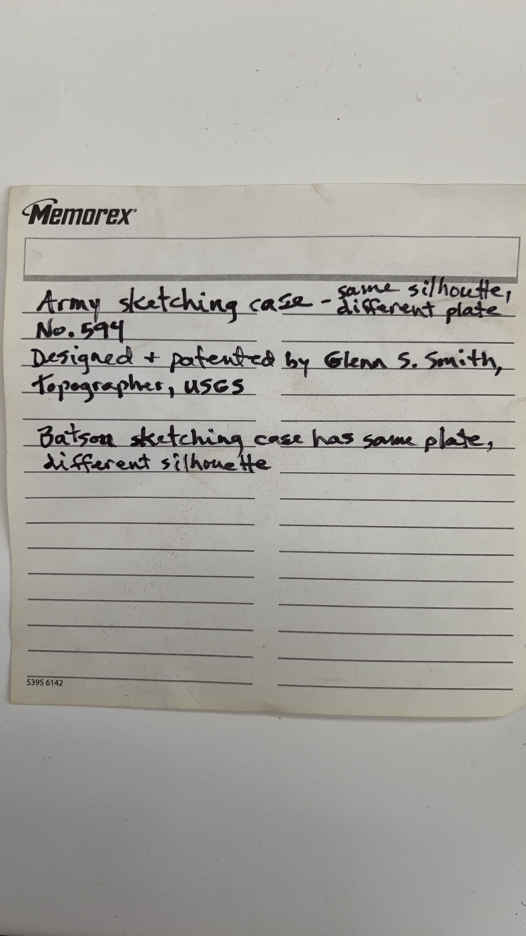 Memorex
Army sketching case - same silhouette,
different plate
No. 594
Designed + patented by Glenn S. Smith,
Topographer, USGS
Batson sketching case has same plate,
different silhouette
5395 6142